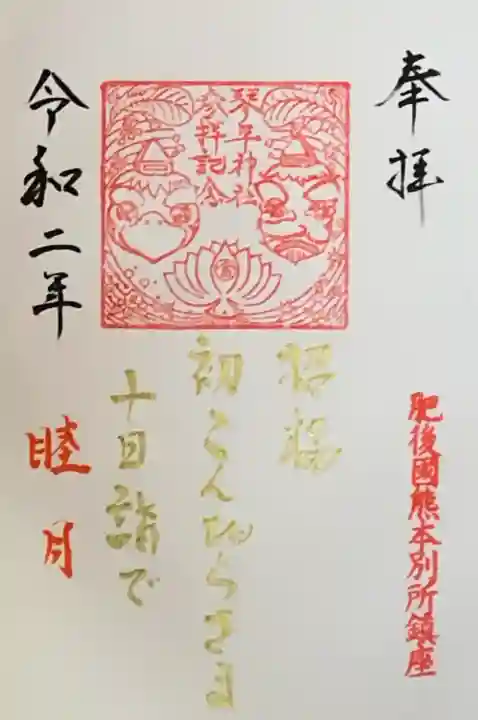 奉拝
肥後國熊本別所鎮座
琴平神社
参拝記念
招福
初こんぴらさま
十日詣で
令和二年
睦月